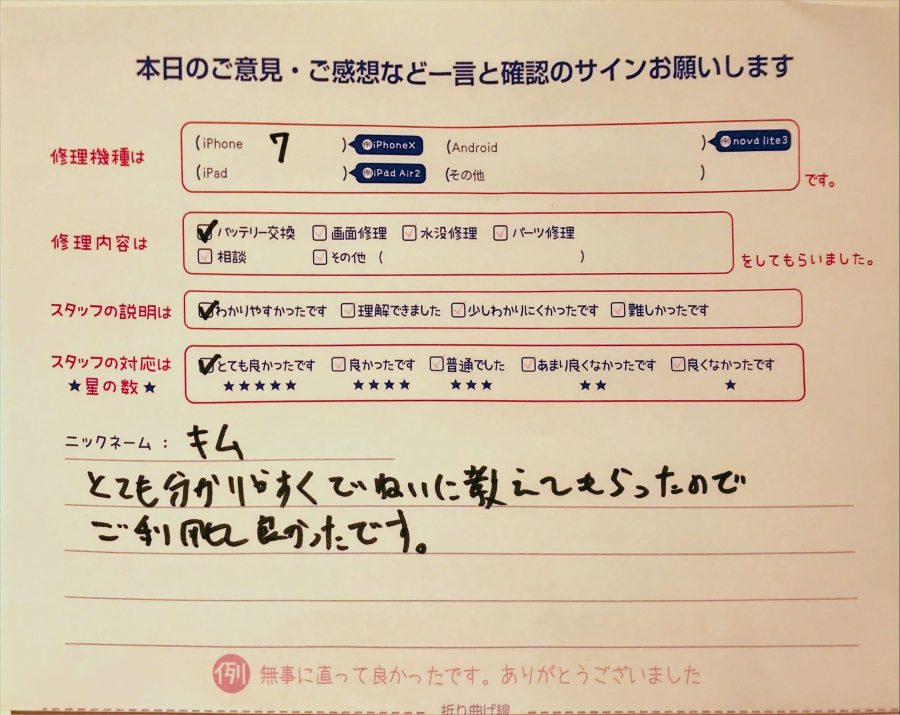 本日のご意見・ご感想など一言と確認のサインお願いします
修理機種は
(iPhone 7 ) 例iPhoneX (Android ) 例nova lite3
(iPad ) 例iPad Air2 (その他 )
です。
修理内容は
バッテリー交換 画面修理 水没修理 パーツ修理
相談 その他 ( )
をしてもらいました。
スタッフの説明は
わかりやすかったです 理解できました 少しわかりにくかったです 難しかったです
スタッフの対応は
★星の数★
とても良かったです 良かったです 普通でした あまり良くなかったです 良くなかったです
★★★★★ ★★★★ ★★★ ★★ ★
ニックネーム : キム
とても分かりやすくていねいに教えてもらったので
ご利用して良かったです。
例 無事に直って良かったです。ありがとうございました
折り曲げ線